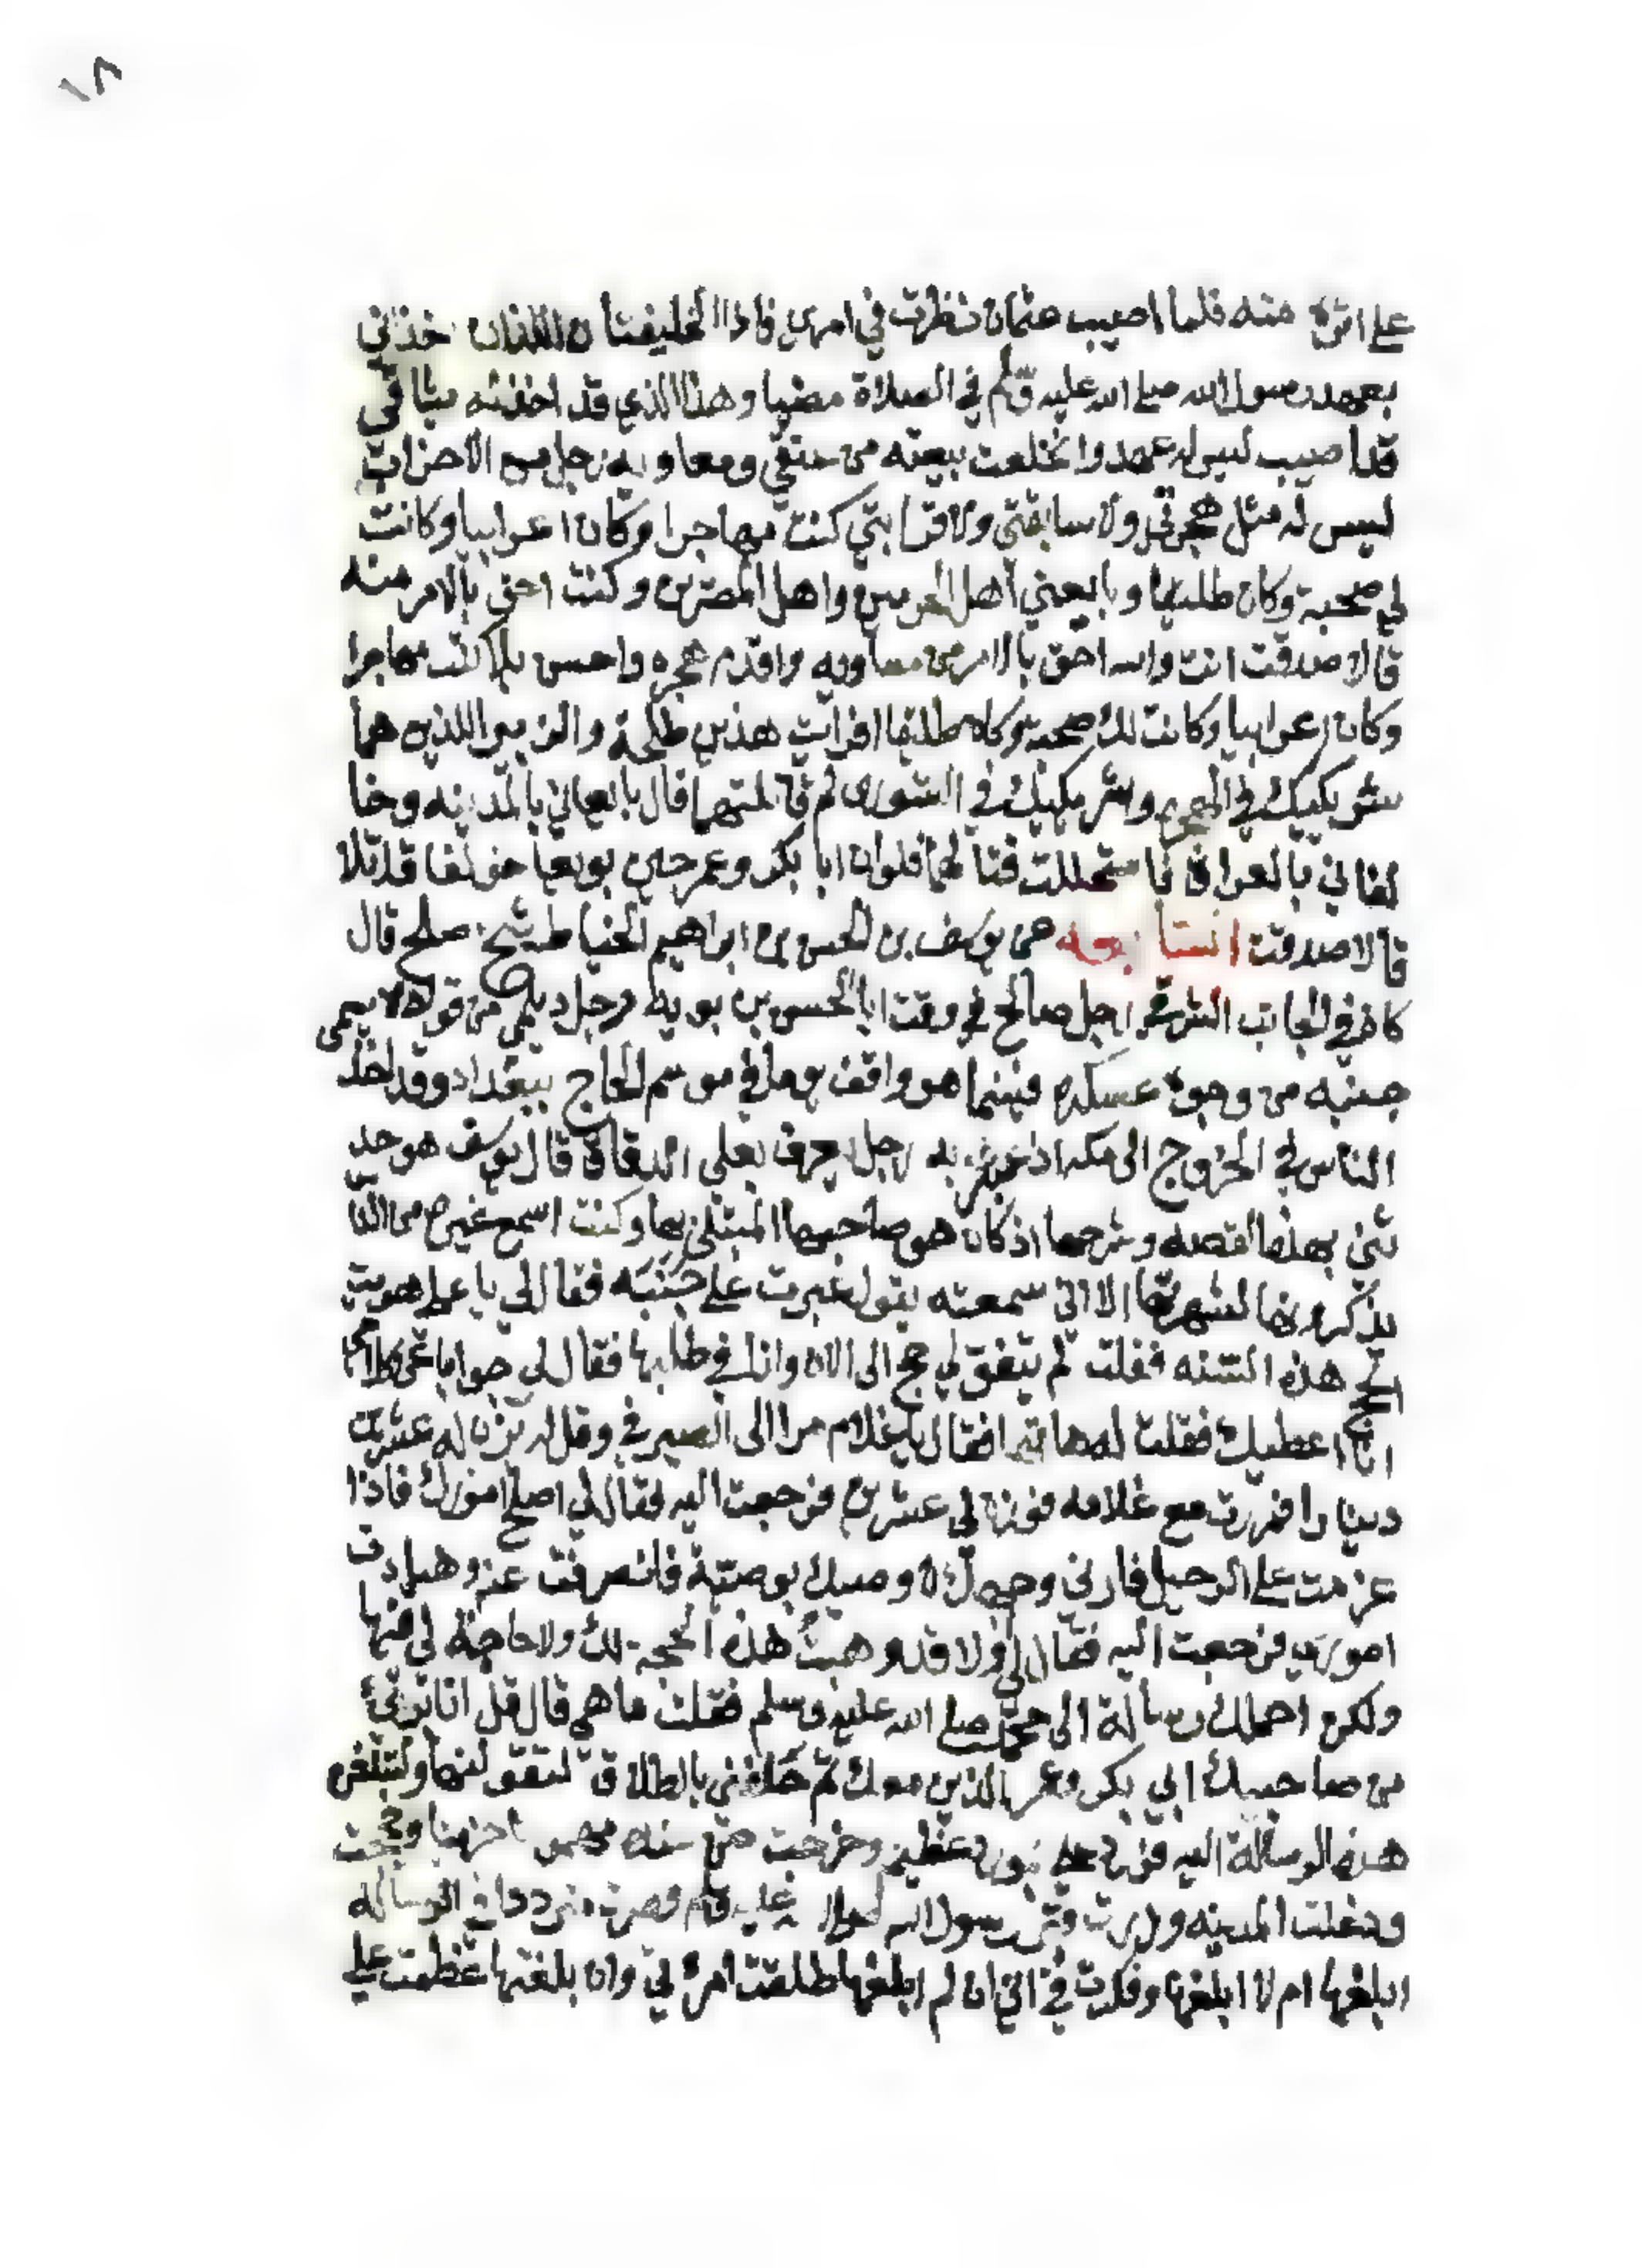 ١٨
على اثره منه فلما اصيب عثمان نظرت في امري فاذا الخليفتان اللذان اخذاني
بعهد رسول الله صلى الله عليه وسلم في الصلاة مضيا وهذا الذي قد اخذته ميثاقي
قد اصيب ليس له عهد وانخلعت بيعته من عنقي ومعاويه رجل من الاحزاب
ليس له مثل هجرتي ولا سابقتي ولا قرابتي كنت مهاجرا وكان اعرابيا وكانت
لي صحبة وكان طليقا وبايعني اهل الحرمين واهل المصرين وكنت احق بالامر منه
قالا صدقت انت والله احق بالامر من معاويه واقدم هجره واحسن بلا كنت مهاجرا
وكان اعرابيا وكانت لك صحبة وكان طليقا افرايت هذين طلحة والزبير اللذين هما
شريكيك في الهجره وشريكيك في الشورى لم قاتلتهما قال بايعاني بالمدينه وخا
لفاني بالعراق فاستحللت قتالهما فلو ان ابا بكر وعمر حين بويعا خولفا قاتلا
قالا صدقت عن يوسف بن الحسن بن ابراهيم الخياط شيخ صالح قال
كان في الجانب الشرقي رجل صالح في وقت ابا الحسن بن بويه رجل ديلمي من قواده يسمى
جبنه من وجوه عسكره فبينما هو واقف يوما في موسم الحاج ببغداد وقد اخذ
الناس في الخروج الى مكه اذ عبر به رجل يعرف بعلي الدقاق قال يوسف هو حد
ثني بهذه القصه وشرحها اذ كان هو صاحبها المبتلى بها وكنت اسمع غيره من النا
يذكرونها لشهرتها الا اني سمعته يقول عبرت على جبنه فقال لي يا علي هو بت
الحج هذه السنه فقلت لم يتفق لي حج الى الان وانا في طلبها فقال لي جوابا عن كلامي
انا اعطيك فقلت له هاتها فقال يا غلام مر الى الصيرفي وقل له يزن له عشرين
دينارا فمررت مع غلامه فوزن لي عشرين فرجعت اليه فقال لي اصلح امورك فاذا
عزمت على الرحيل فارني وجهك لاوصيك بوصية فانصرفت عنه وهيات
اموري فرجعت اليه فقال لي اولا قد وهبت هذه الحجه لك ولا حاجة لي فيها
ولكن احملك رسالة الى محمد صلى الله عليه وسلم فقلت ما هي قال قل انا بريء
من صاحبيك ابي بكر وعمر الذين معك ثم حلفني بالطلاق لتقولنها ولتبلغن
هذه الرسالة اليه فورد علي مورد عظيم وخرجت من عنده مهموما حزينا وحججت
ودخلت المدينه وزرت قبر رسول الله صلى الله عليه وسلم وصرت مترددا في الرساله
ابلغها ام لا ابلغها وفكرت في اني ان لم ابلغها طلقت امراتي وان بلغتها عظمت علي